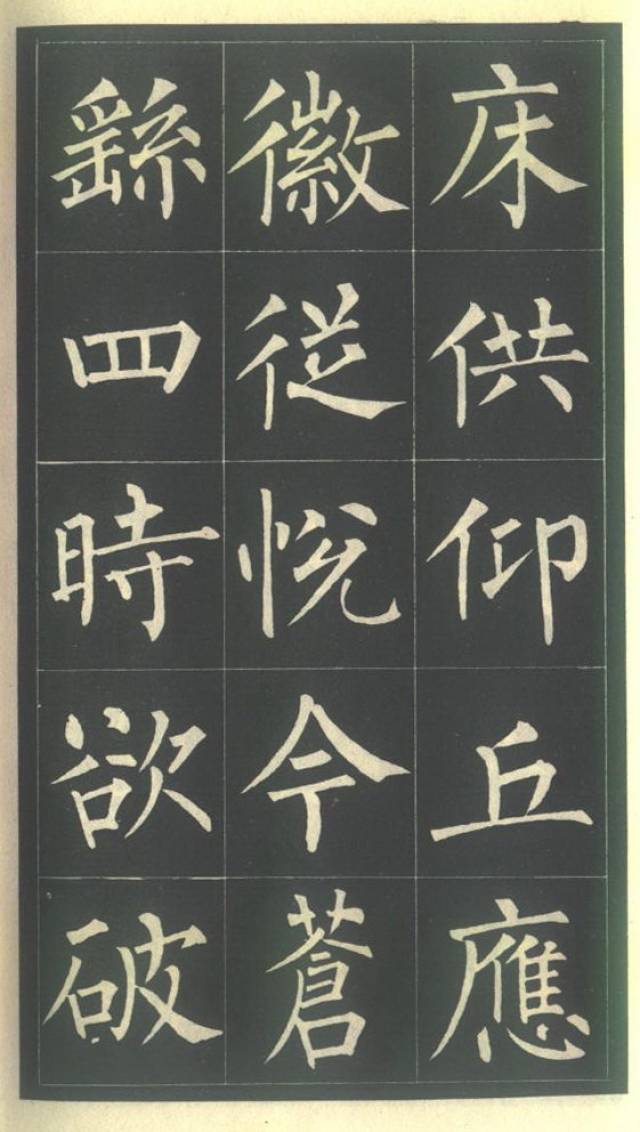 床供仰丘應
徽従悦今蒼
繇四時欲破